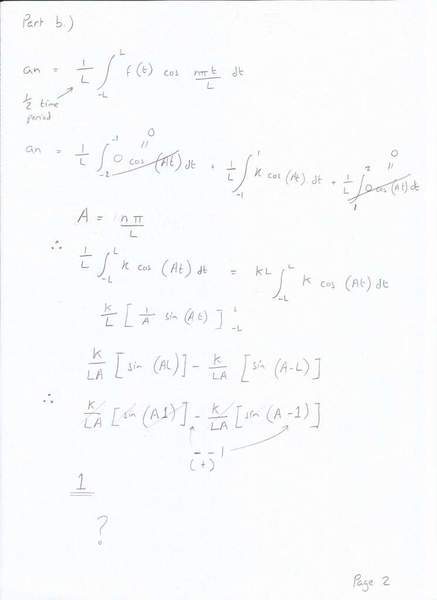 Part b.)
an = 1/L ∫_{-L}^{L} f(t) cos nπt/L dt
1/2 time period
an = 1/L ∫_{-2}^{-1} 0 cos (At) dt + 1/L ∫_{-1}^{1} K cos (At) dt + 1/L ∫_{1}^{2} 0 cos (At) dt
0 = 0 =
A = nπ/L
∴ 1/L ∫_{-L}^{L} K cos (At) dt = KL ∫_{-L}^{L} K cos (At) dt
K/L [ 1/A sin (At) ]_{-L}^{L}
K/LA [sin (AL)] - K/LA [sin (A-L)]
∴ K/LA [sin (A1)] - K/LA [sin (A-1)]
- - 1
(+)
1
?
Page 2